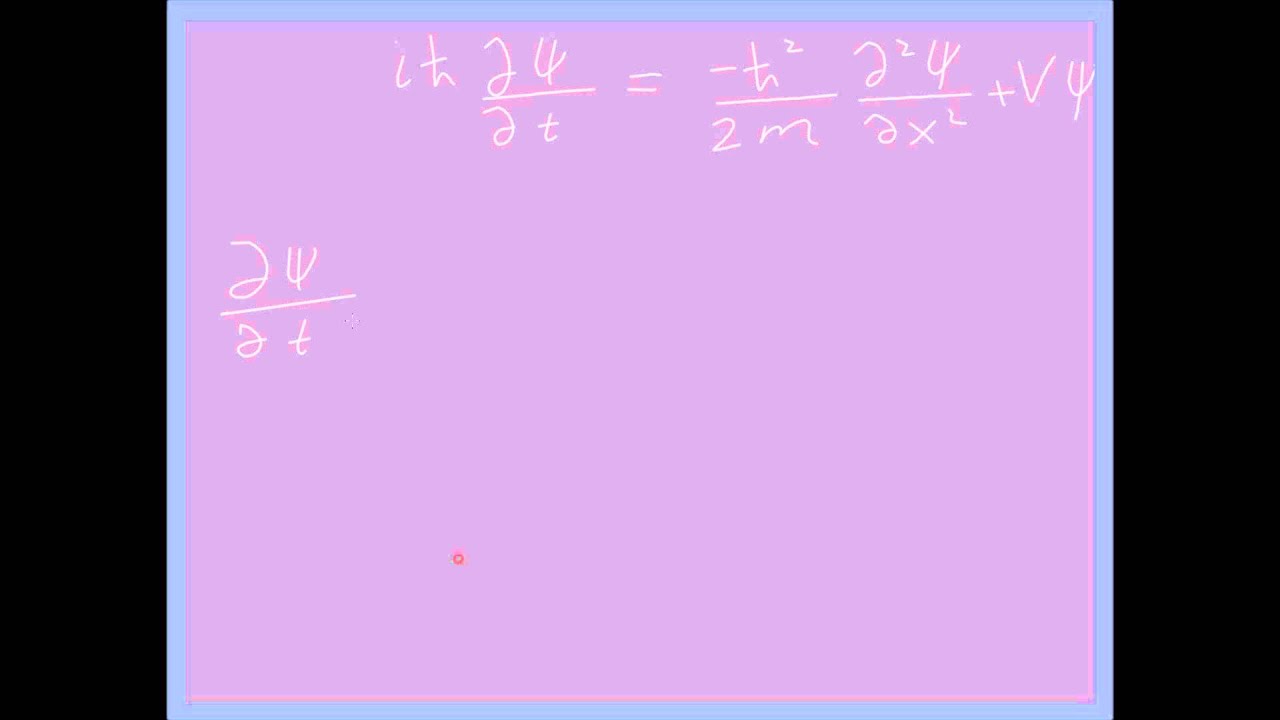 iħ ∂ψ/∂t = -ħ²/2m ∂²ψ/∂x² + Vψ
∂ψ/∂t